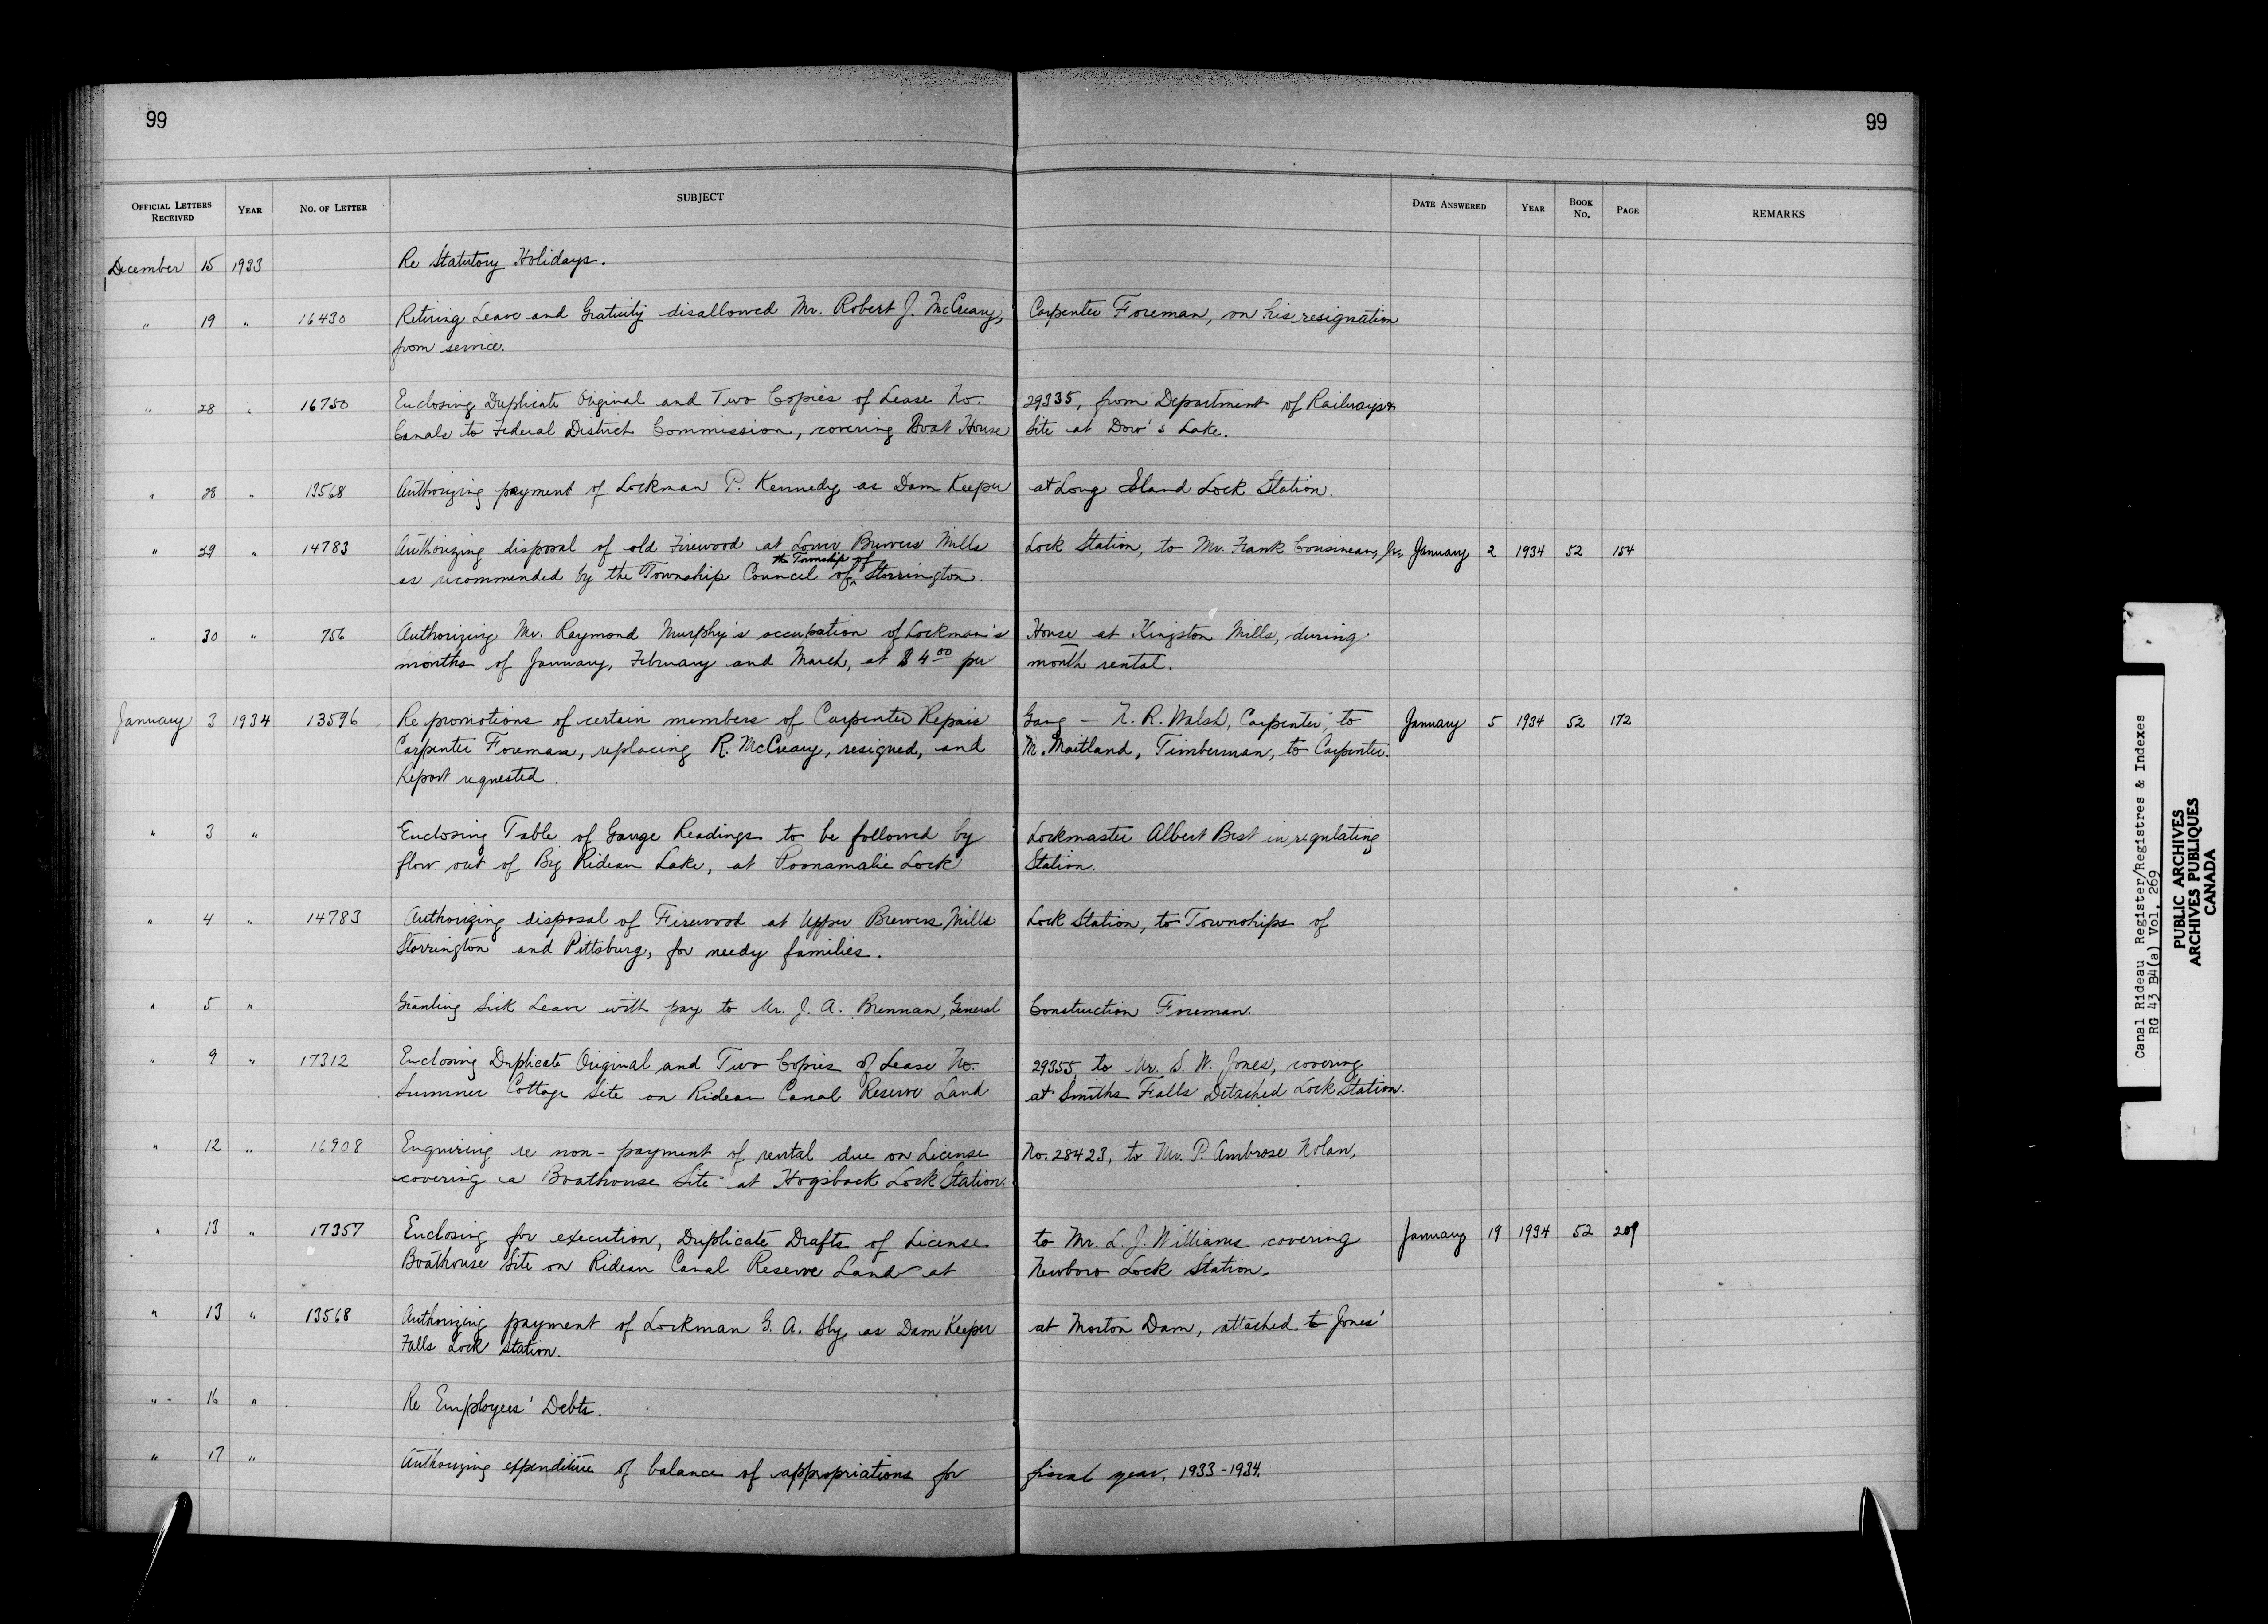 99
99
OFFICIAL LETTERS RECEIVED YEAR NO. OF LETTER SUBJECT DATE ANSWERED YEAR BOOK No. PAGE REMARKS
December 15 1933 Re Statutory Holidays.
" 19 " 16430 Retiring Leave and Gratuity disallowed Mr. Robert J. McCreary, Carpenter Foreman, on his resignation
from service.
" 28 " 16750 Enclosing Duplicate Original and Two Copies of Lease No. 29335, from Department of Railways &
Canals to Federal District Commission, covering Boat House Site at Dow's Lake.
" 28 " 13568 Authorizing payment of Lockman P. Kennedy as Dam Keeper at Long Island Lock Station.
" 29 " 14783 Authorizing disposal of old Firewood at Lower Brewers Mills Lock Station, to Mr. Frank Cousineau, Jr., January 2 1934 52 154
the Township of
as recommended by the Township Council of Storrington.
" 30 " 756 Authorizing Mr. Raymond Murphy's occupation of Lockman's House at Kingston Mills, during
months of January, February and March, at $4.00 per month rental.
January 3 1934 13596 Re promotions of certain members of Carpenter Repair Gang — N. R. Walsh, Carpenter, to January 5 1934 52 172
Carpenter Foreman, replacing R. McCreary, resigned, and M. Maitland, Timberman, to Carpenter.
Report requested.
" 3 " Enclosing Table of Gauge Readings to be followed by Lockmaster Albert Best in regulating
flow out of Big Rideau Lake, at Poonamalie Lock Station.
" 4 " 14783 Authorizing disposal of Firewood at Upper Brewers Mills Lock Station, to Townships of
Storrington and Pittsburg, for needy families.
" 5 " Granting Sick Leave with pay to Mr. J. A. Brennan, General Construction Foreman.
" 9 " 17312 Enclosing Duplicate Original and Two Copies of Lease No. 29355, to Mr. S. W. Jones, covering
Summer Cottage Site on Rideau Canal Reserve Land at Smiths Falls Detached Lock Station.
" 12 " 16908 Enquiring re non-payment of rental due on License No. 28423, to Mr. P. Ambrose Nolan,
covering a Boathouse Site at Hogsback Lock Station.
" 13 " 17357 Enclosing for execution, Duplicate Drafts of License to Mr. L. J. Williams covering January 19 1934 52 209
Boathouse Site on Rideau Canal Reserve Land at Newboro Lock Station.
" 13 " 13568 Authorizing payment of Lockman G. A. Sly, as Dam Keeper at Morton Dam, attached to Jones'
Falls Lock Station.
" 16 " Re Employees' Debts.
" 17 " Authorizing expenditure of balance of appropriations for fiscal year, 1933-1934.
Canal Rideau Register/Registres & Indexes
RG 43 B4(a) Vol. 269
PUBLIC ARCHIVES
ARCHIVES PUBLIQUES
CANADA